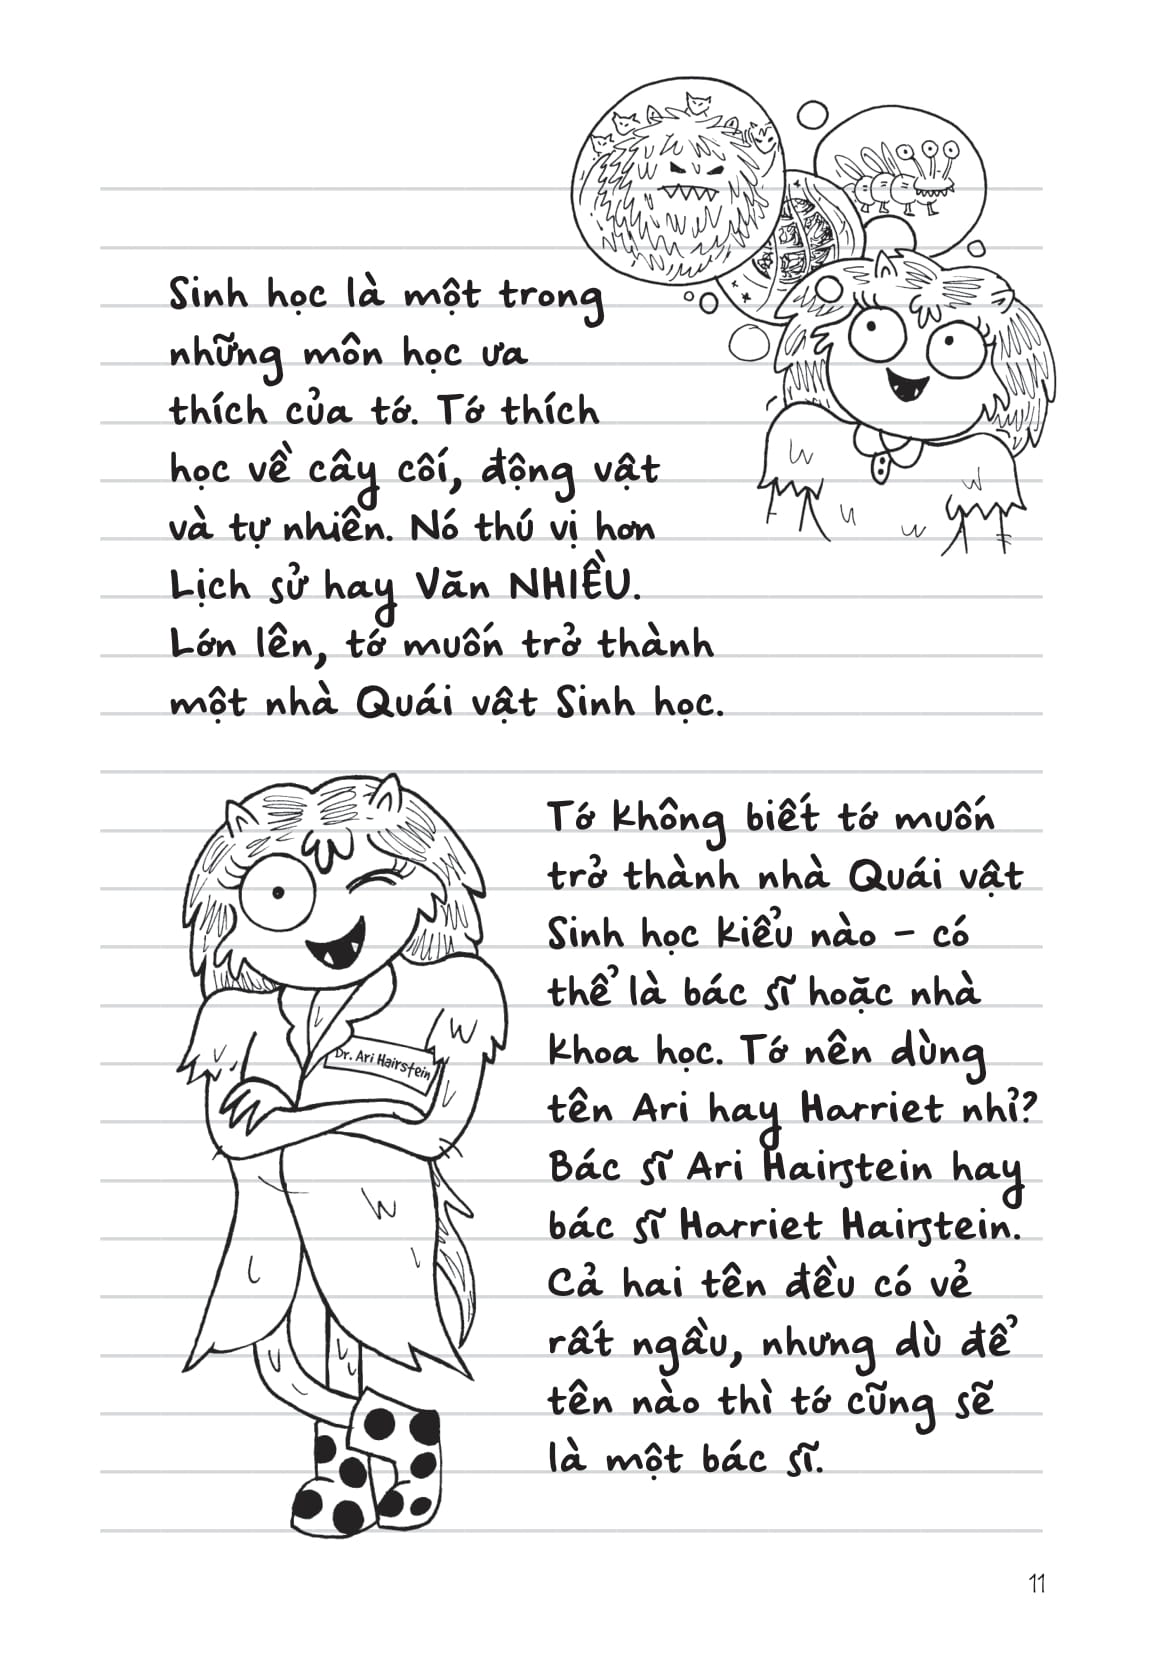 Sinh học là một trong
những môn học ưa
thích của tớ. Tớ thích
học về cây cối, động vật
và tự nhiên. Nó thú vị hơn
Lịch sử hay Văn NHIỀU.
Lớn lên, tớ muốn trở thành
một nhà Quái vật Sinh học.
Dr. Ari Hairstein
Tớ không biết tớ muốn
trở thành nhà Quái vật
Sinh học kiểu nào - có
thể là bác sĩ hoặc nhà
khoa học. Tớ nên dùng
tên Ari hay Harriet nhỉ?
Bác sĩ Ari Hairstein hay
bác sĩ Harriet Hairstein.
Cả hai tên đều có vẻ
rất ngầu, nhưng dù để
tên nào thì tớ cũng sẽ
là một bác sĩ.
11